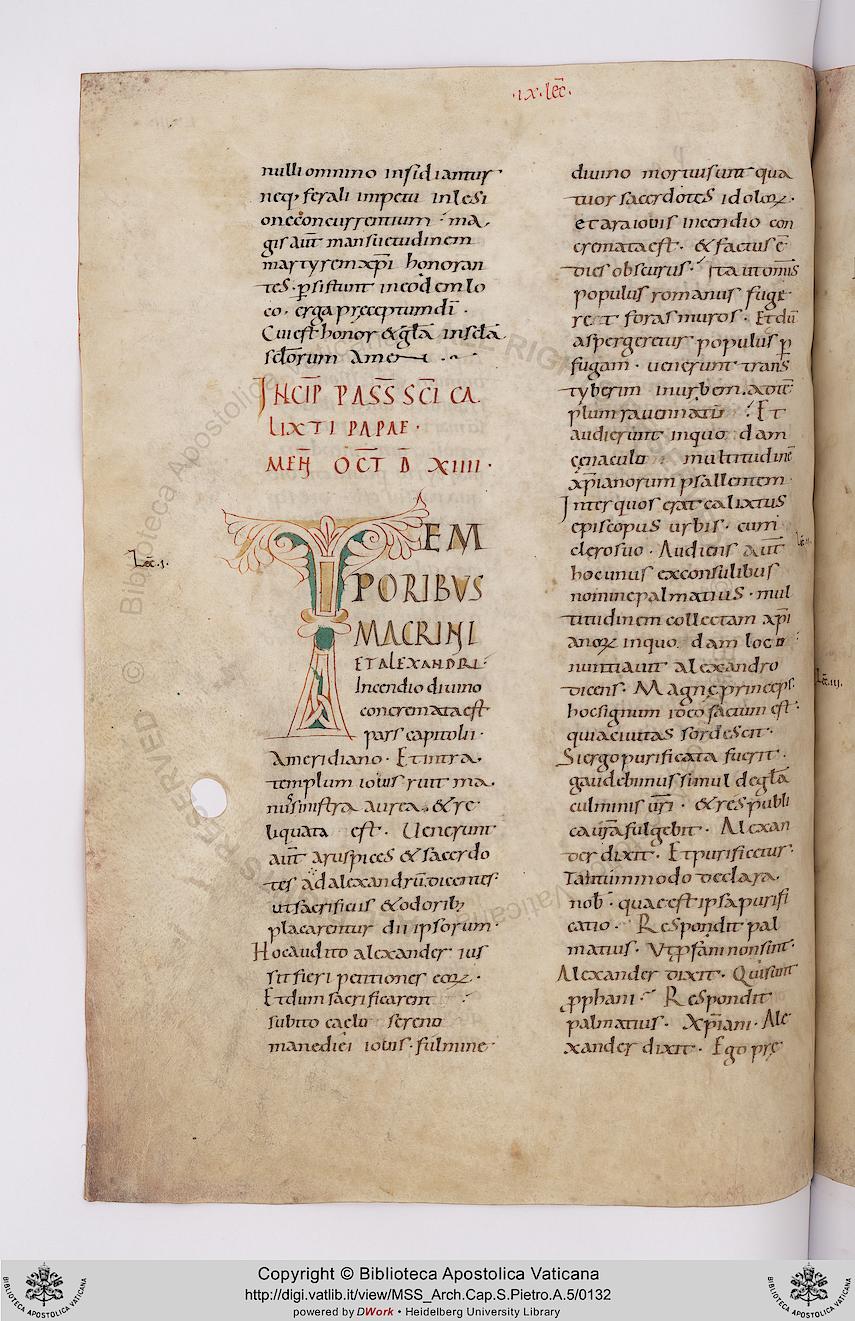 ·ix·lēc·
nulli omnino insidiantur
neq; ferali impetu inlesi
one concurrentium · ma
gis aūt mansuetudinem
martyrem xp̄i honoran
tes · p̱sistunt in eodem lo
co · erga preceptum dī ·
Cui est honor & glā in sclā
sclorum Amen
INCIP PASS SCI CA
LIXTI PAPAE ·
MEN OCT D XIIII ·
TEM
PORIBUS
MACRINI
ET ALEXANDRI ·
Incendio diuino
concremata est
pars capitolii ·
A meridiano · Et intra
templum iouis ruit ma
nus sinistra aurea · & re
liquata est · Uenerunt
aūt aruspices & sacerdo
tes ad alexandrū dicentes
ut sacrificiis & odorib;
placarentur dii ipsorum ·
Hoc audito alexander ius
sit fieri petitiones eoꝝ ·
Et dum sacrificarent
subito caelo sereno
mane diei iouis · fulmine
Lēc · i ·
diuino mortui sunt qua
tuor sacerdotes idoloꝝ ·
et ara iouis incendio con
cremata est · & factus ē
dies obscurus · Ita ut omīs
populus romanus fuge
ret foras muros · Et dū
aspergeretur populus p̱
fugam · uenerunt trans
tyberim in urbem
plum rauennatiū · Et
audierunt in quodam
cenaculo multitudinē
xp̄ianorum psallentem
Inter quos erat calixtus
episcopus urbis · cum
clero suo · Audiens aūt
hoc unus ex consulibus
nomine palmatius · mul
titudinem collectam xp̄i
anoꝝ in quodam loco
nuntiauit alexandro
dicens · Magne princeps
hoc signum ideo factum est ·
quia ciuitas sordescit ·
Si ergo purificata fuerit ·
gaudebimus simul de glā
culminis ūri · & res publi
ca ūra fulgebit · Alexan
der dixit · Et purificetur ·
Tantummodo declara
nob · quae est ipsa purifi
catio · Respondit pal
matius · Ut p̱phani non sint ·
Alexander dixit · Qui sunt
p̱phani · Respondit
palmatius · Xp̄iani · Ale
xander dixit · Ego prę
Lēc · iii ·
Copyright © Biblioteca Apostolica Vaticana
http://digi.vatlib.it/view/MSS_Arch.Cap.S.Pietro.A.5/0132
powered by DWork • Heidelberg University Library